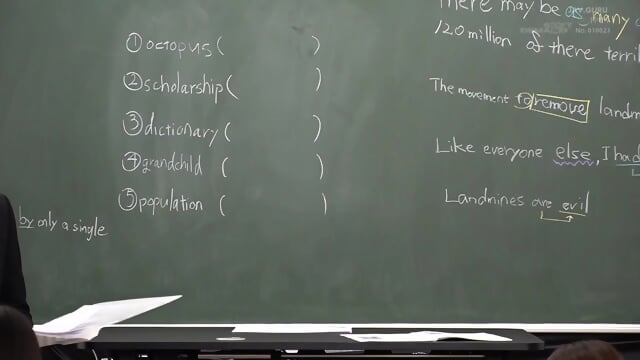 ① octopus ( )
② scholarship ( )
③ dictionary ( )
④ grandchild ( )
⑤ population ( )
by only a single
There may be as many
120 million of there terri
The movement to remove landm
Like everyone else, I had
Landmines are evil
GURU
No: 010023